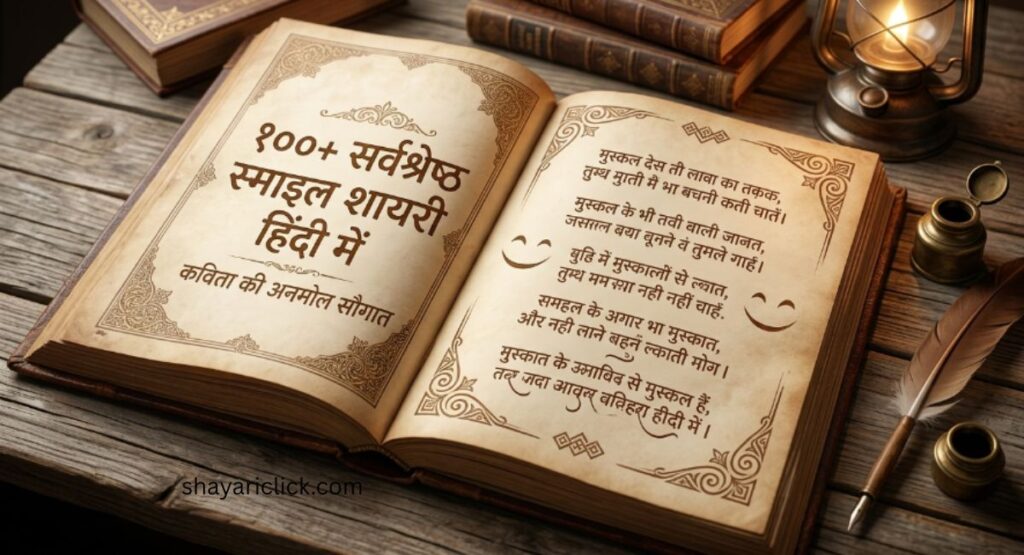 १००+ सर्वश्रेष्ठ
स्माइल शायरी
हिंदी में
कविता की अनमोल सौगात
मुस्कल देस ती लावा का तकक,
तुम्थ मुाती मै भा बचनी कती चातें।
मुस्कल के भी तवी बाली जानत,
बया वूनने वं तुमले गाहँ।
बुहि में मुस्कालों से ल्वात,
तुम्थ मम स्पा नही नहीं चाहें.
समहल के अगार भा मुस्कात,
और नही लाने बहुनं ल्काती मोग।
मुस्कात के से मुस्कल हैं,
जदा हीदी में।
shayariclick.com